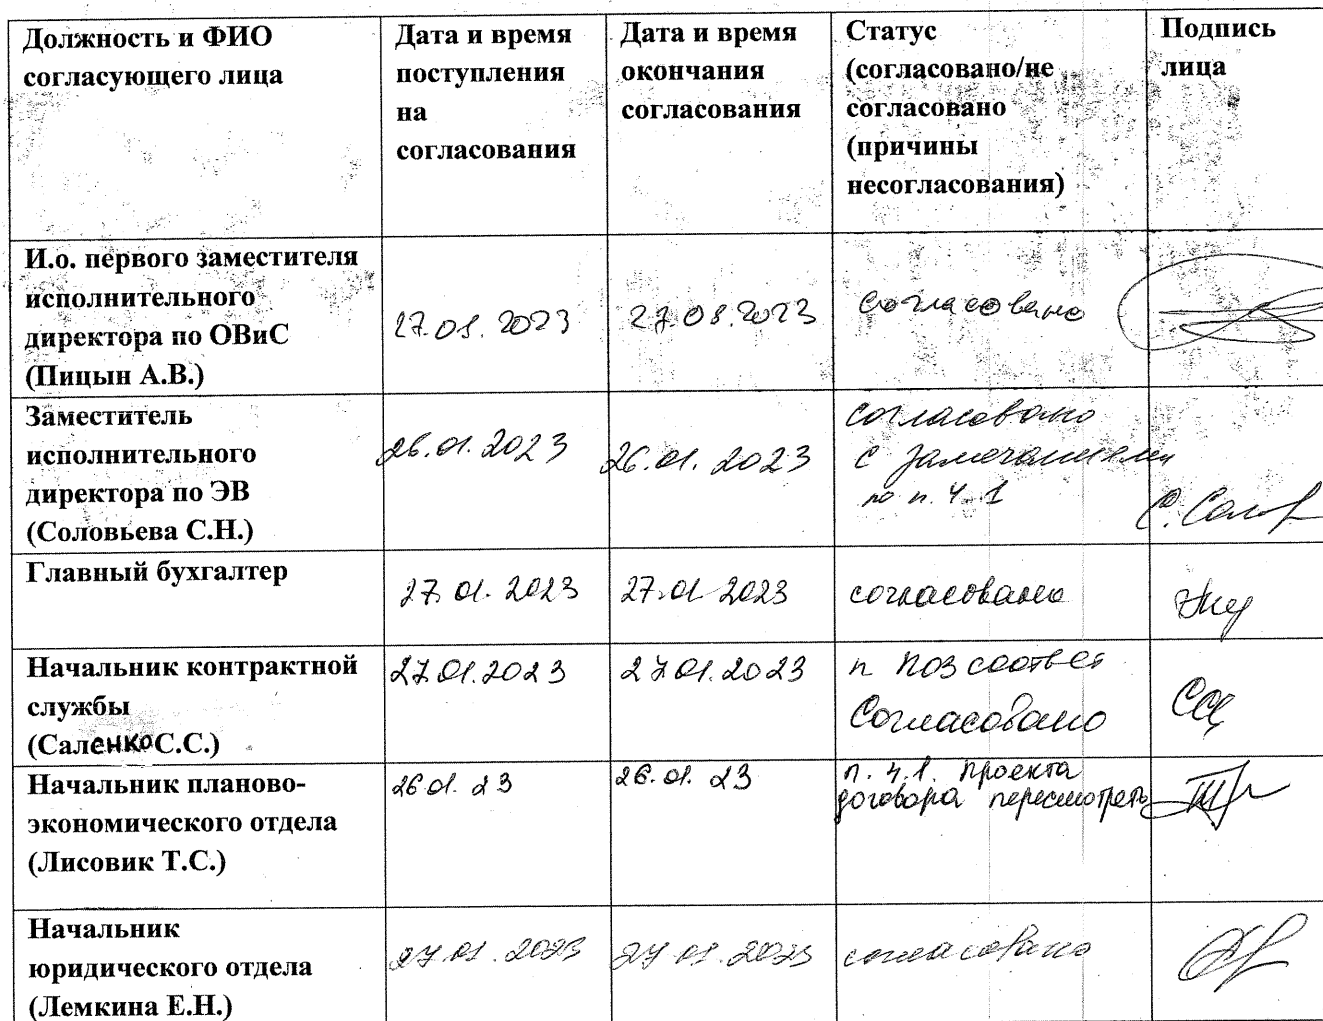 Должность и ФИО
согласующего лица
Дата и время
поступления
на
согласования
Дата и время
окончания
согласования
Статус
(согласовано/не
согласовано
(причины
несогласования)
Подпись
лица
И.о. первого заместителя
исполнительного
директора по ОВиС
(Пицын А.В.)
27.01.2023
27.01.2023
согласовано
Заместитель
исполнительного
директора по ЭВ
(Соловьева С.Н.)
26.01.2023
26.01.2023
согласовано
с замечаниями
по п. 4.1
Главный бухгалтер
27.01.2023
27.01 2023
согласовано
Начальник контрактной
службы
(Саленко С.С.)
27.01.2023
27.01.2023
п ПОЗ соответ
Согласовано
Начальник планово-
экономического отдела
(Лисовик Т.С.)
26.01.23
26.01.23
п. 4.1. проекта
договора пересмотреть
Начальник
юридического отдела
(Лемкина Е.Н.)
27.01.2023
27.01.2023
согласовано